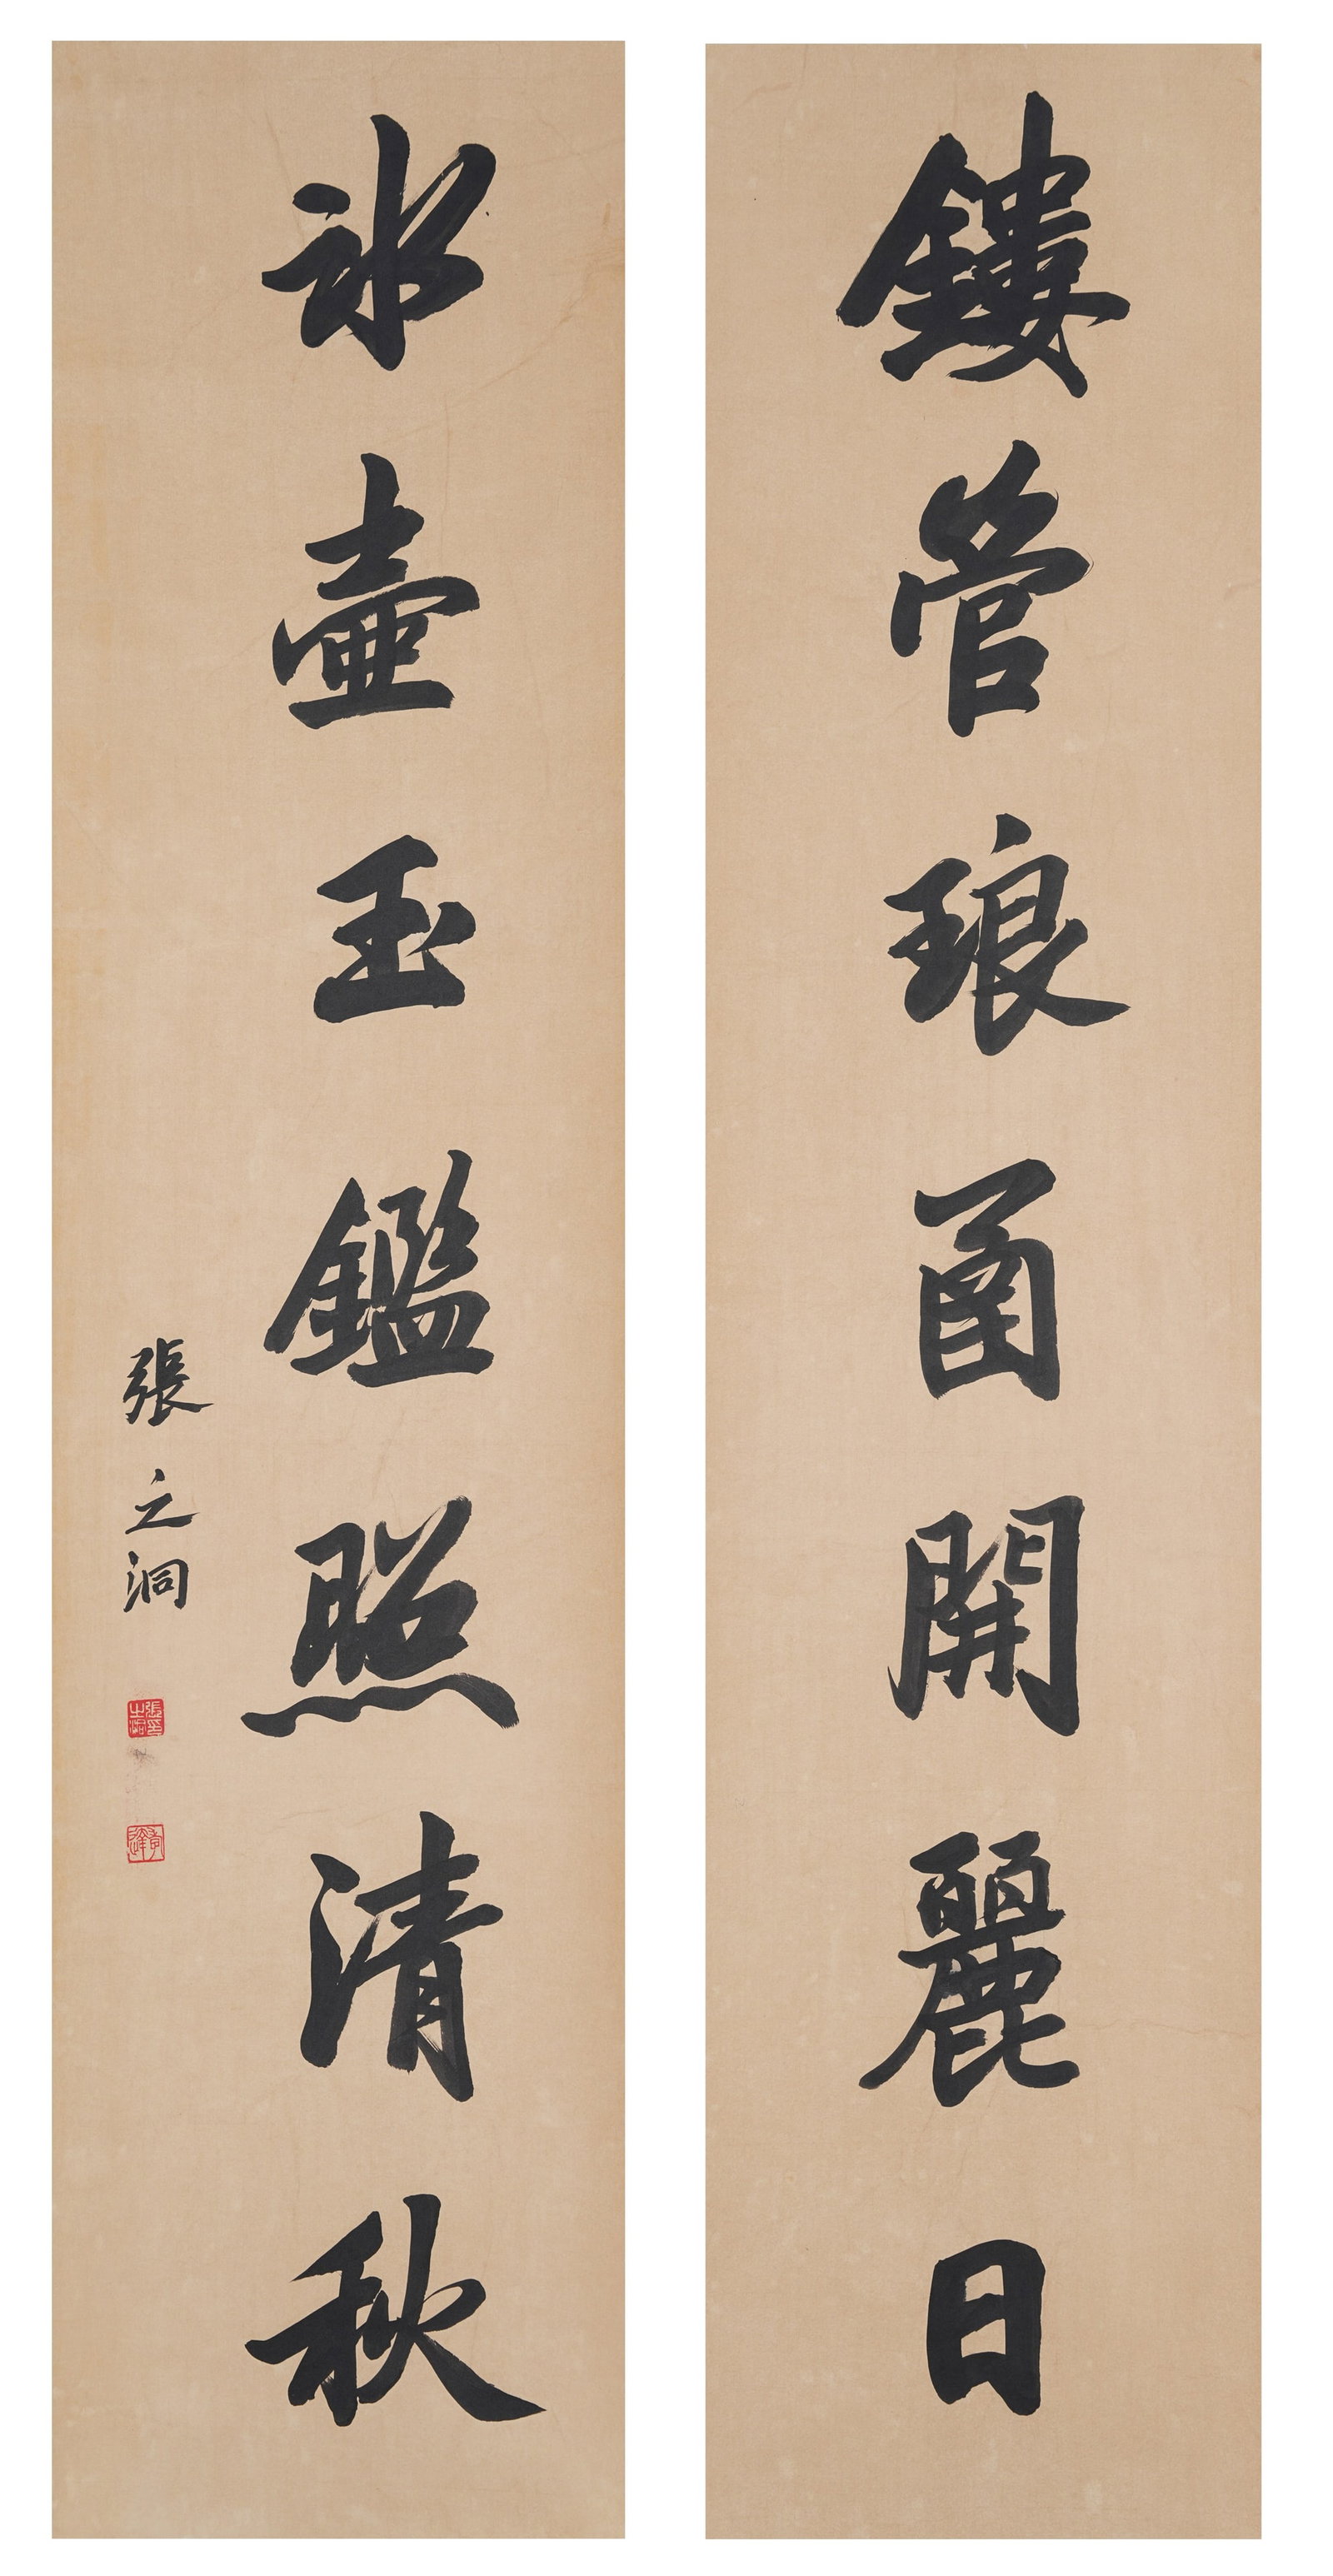 鏤管琅函開麗日
冰壺玉鑑照清秋
張之洞